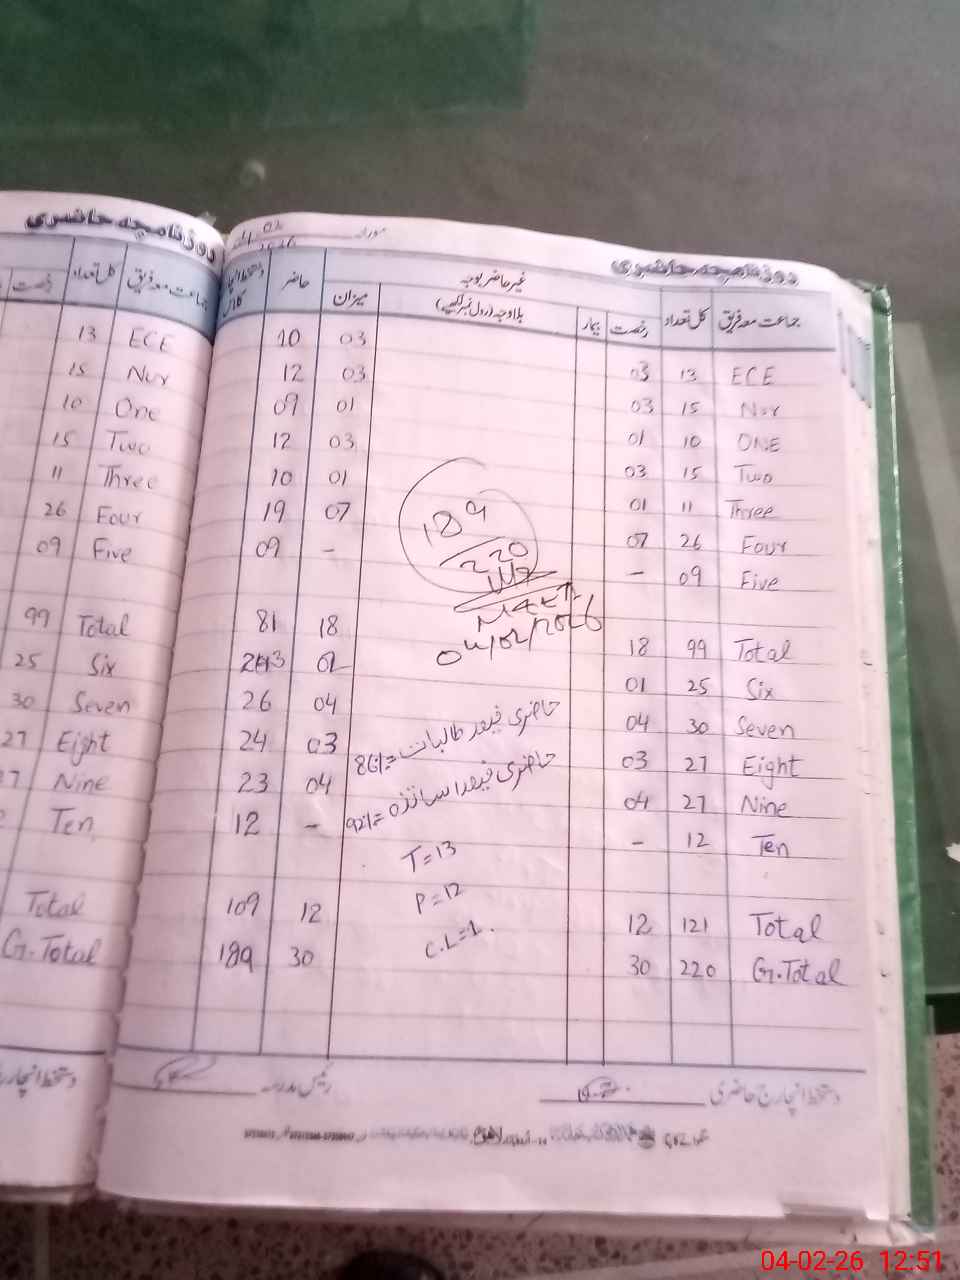 روزنامچہ حاضری
کل تعداد جماعت معہ فریق
13 ECE
15 Nur
10 One
15 Two
11 Three
26 Four
09 Five
99 Total
25 Six
30 Seven
27 Eight
Nine
Ten
Total
G.Total
روزنامچہ حاضری
مورخہ
جماعت معہ فریق کل تعداد رخصت بیمار بلاوجہ (رول نمبر لکھیے) میزان حاضر
غیر حاضر بوجہ
10 03 03 13 ECE
12 03 03 15 Nur
09 01 01 10 ONE
12 03 03 15 Two
10 01 01 11 Three
19 07 07 26 Four
09 - - 09 Five
81 18 18 99 Total
01 25 Six
26 04 04 30 Seven
24 03 03 27 Eight
23 04 04 27 Nine
12 - - 12 Ten
109 12 12 121 Total
189 30 30 220 G.Total
189
220
04/02/2026
حاضری فیصد طالبات = 86%
حاضری فیصد اساتذہ = 92%
T=13
P=12
C.L=1.
دستخط انچارج حاضری
رئیس مدرسہ
04-02-26 12:51